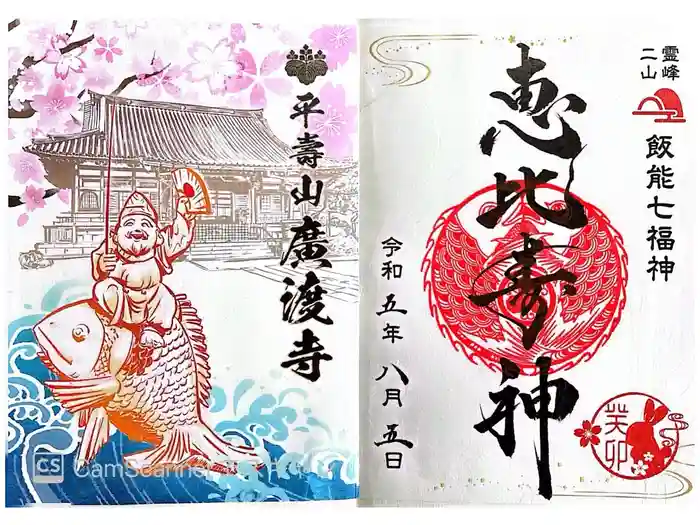 霊峰
二山
飯能七福神
恵比寿神
令和五年 八月五日
癸卯
平壽山廣渡寺
CS CamScanner